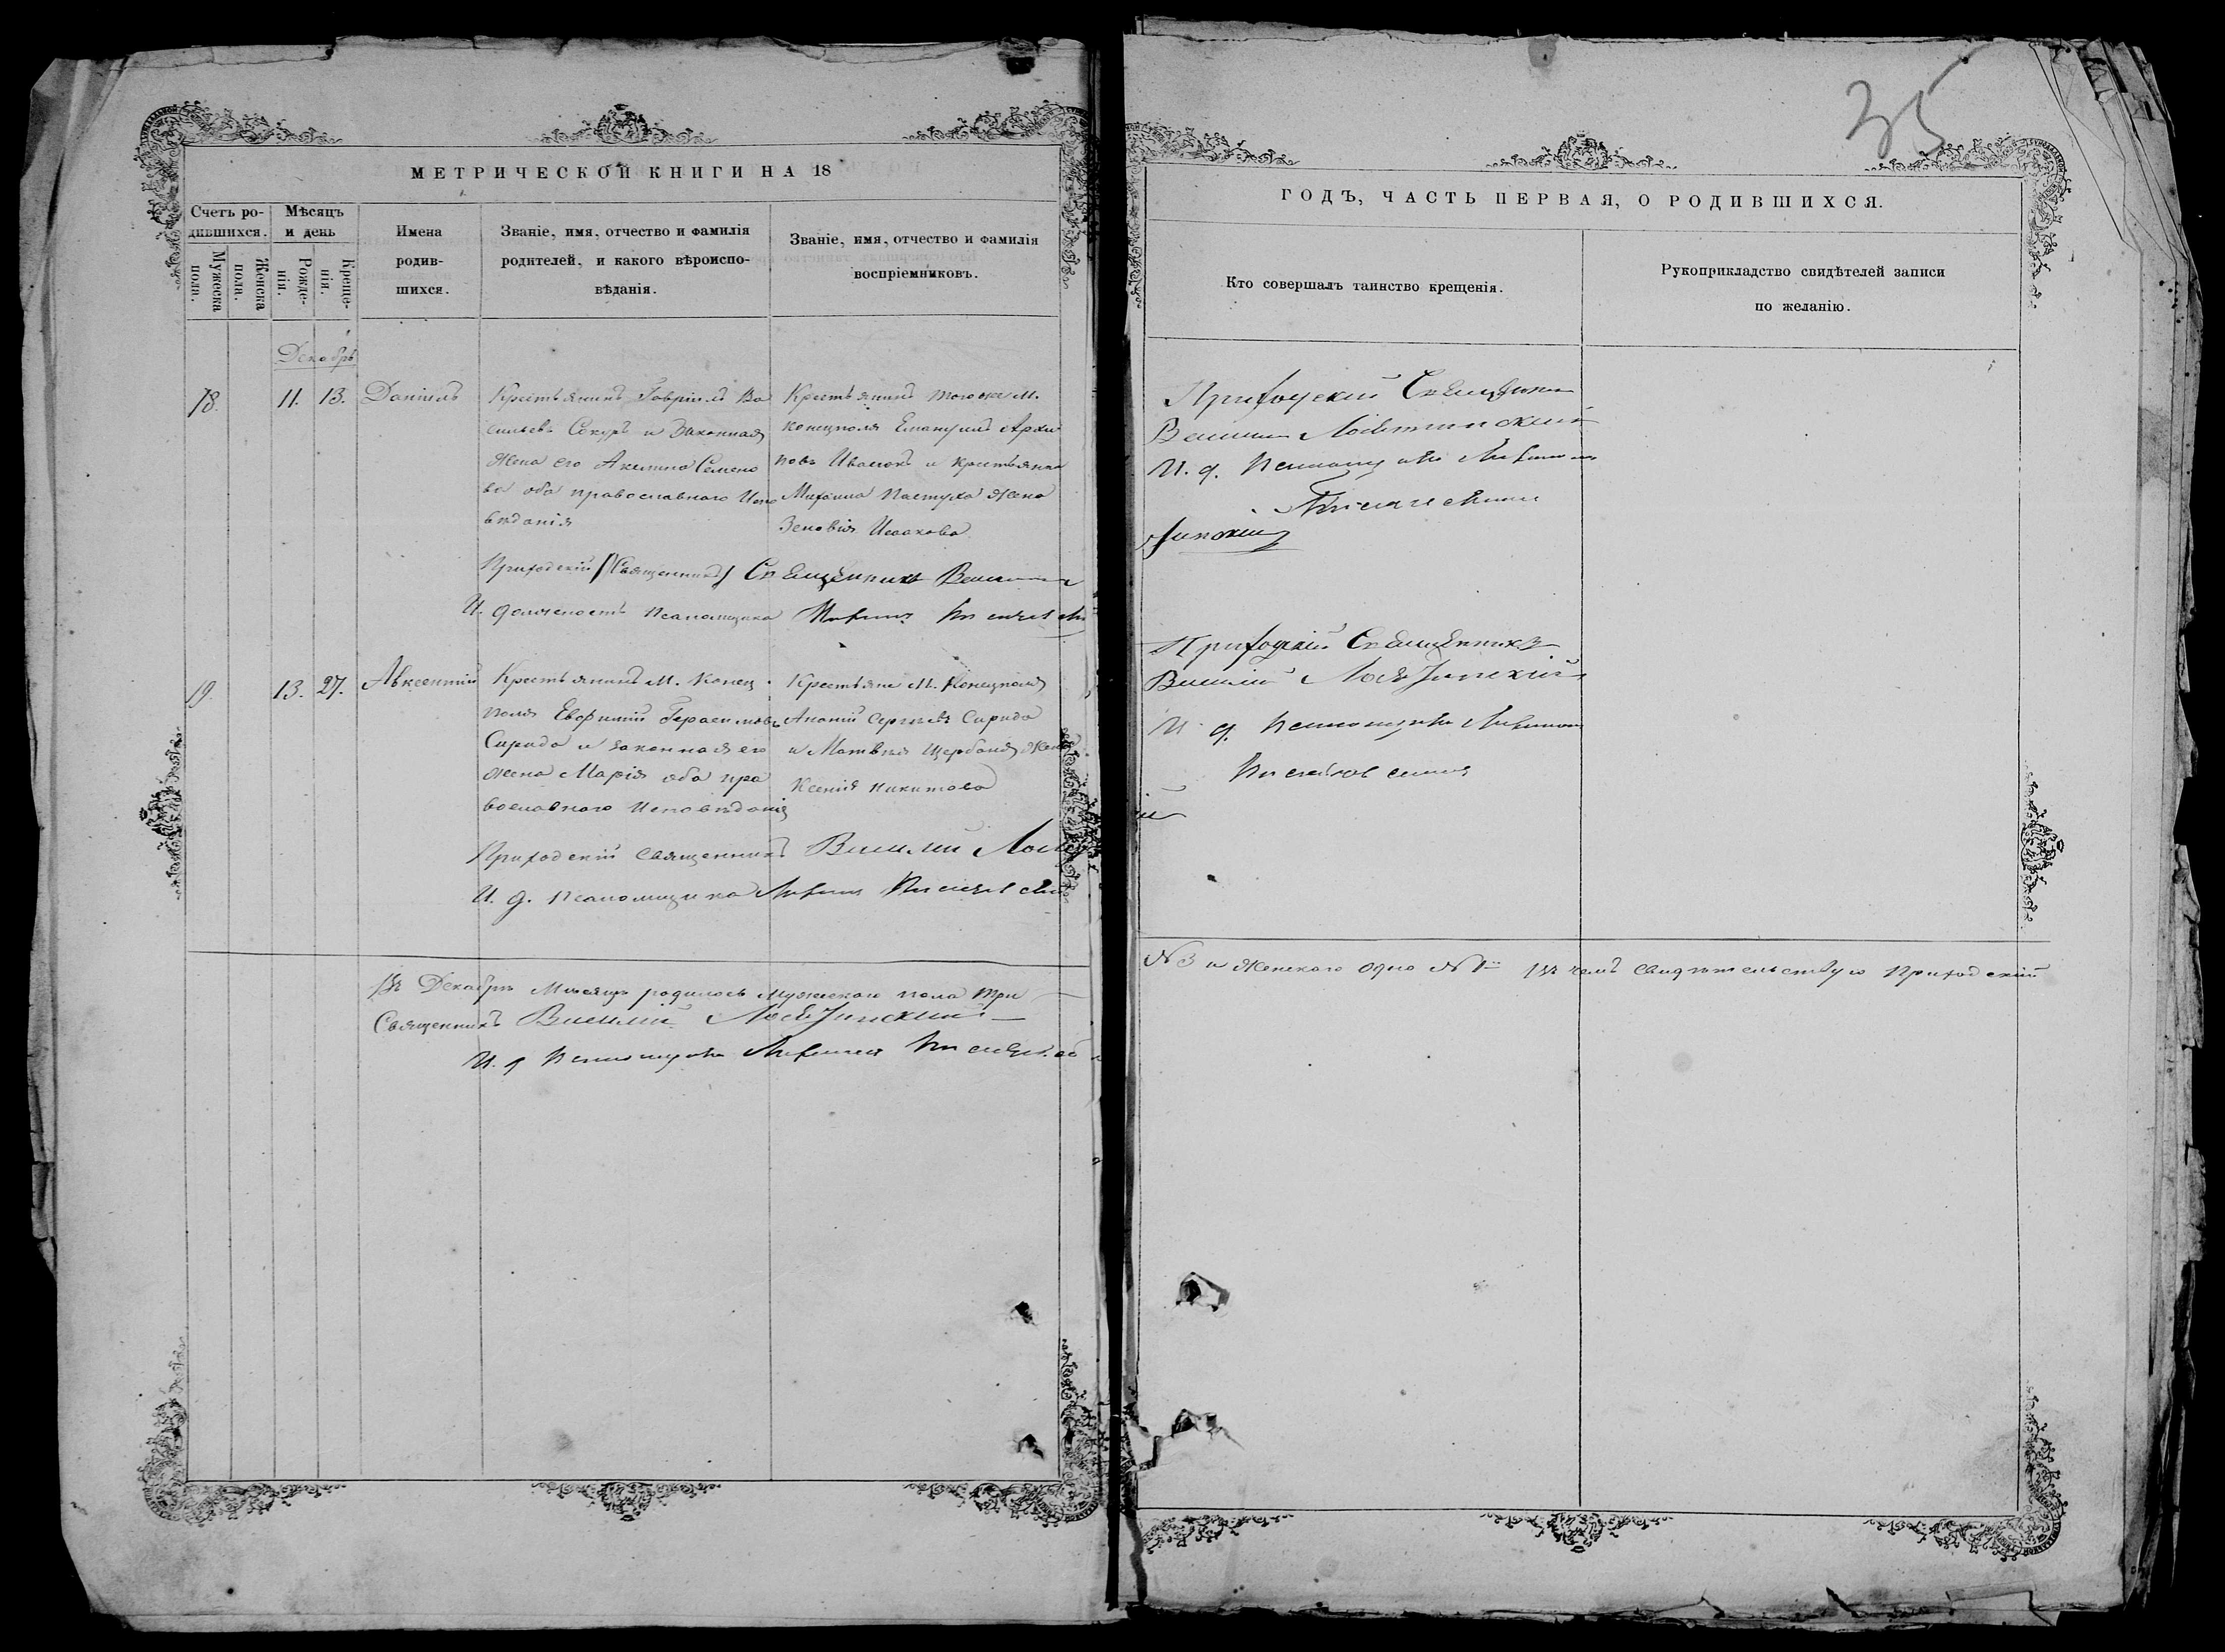 35
МЕТРИЧЕСКОЙ КНИГИ НА 18
Счетъ ро-
дившихся.
Мужеска
пола.
Женска
пола.
Мѣсяцъ
и день
Рожде-
нія.
Креще-
нія.
Имена
родив-
шихся.
Званіе, имя, отчество и фамилія
родителей, и какого вѣроиспо-
вѣданія.
Званіе, имя, отчество и фамилія
воспріемниковъ.
ГОДЪ, ЧАСТЬ ПЕРВАЯ, О РОДИВШИХСЯ.
Кто совершалъ таинство крещенія.
Рукоприкладство свидѣтелей записи
по желанію.
Декабрь
18. 11. 13. Даніилъ
Крестьянинъ Гавріилъ Ва
сильевъ Сокуръ и Законная
жена его Акилина Семено
ва оба православнаго Испо
вѣданія
Крестьянинъ того же М.
Конецполя Емануилъ Архи
повъ Иванокъ и крестьянина
Михаила Пастуха жена
Зеновія Исаакова
Приходскій Священникъ
Василій
И. д. Псаломщика
Приходскій (Священникъ) Священникъ Василій
И. должность Псаломщика
19. 13. 27. Авксентій
Крестьянинъ М. Конец
поля Евфимій Герасимовъ
Сирида и законная его
жена Марія оба пра
вославнаго Исповѣданія
Крестьяне М. Конецполя
Ананій Сергіевъ Сирида
и Матвѣя Щербаня жена
Ксенія Никитова
Приходскій Священникъ
Василій
И. д. Псаломщика
Приходскій Священникъ Василій
И. д. Псаломщика
Въ Декабрѣ Мѣсяцѣ родилось мужескаго пола три
№ 3 и Женскаго одно № 1 въ чемъ свидѣтельствую Приходскій
Священникъ Василій
И. д. Псаломщика